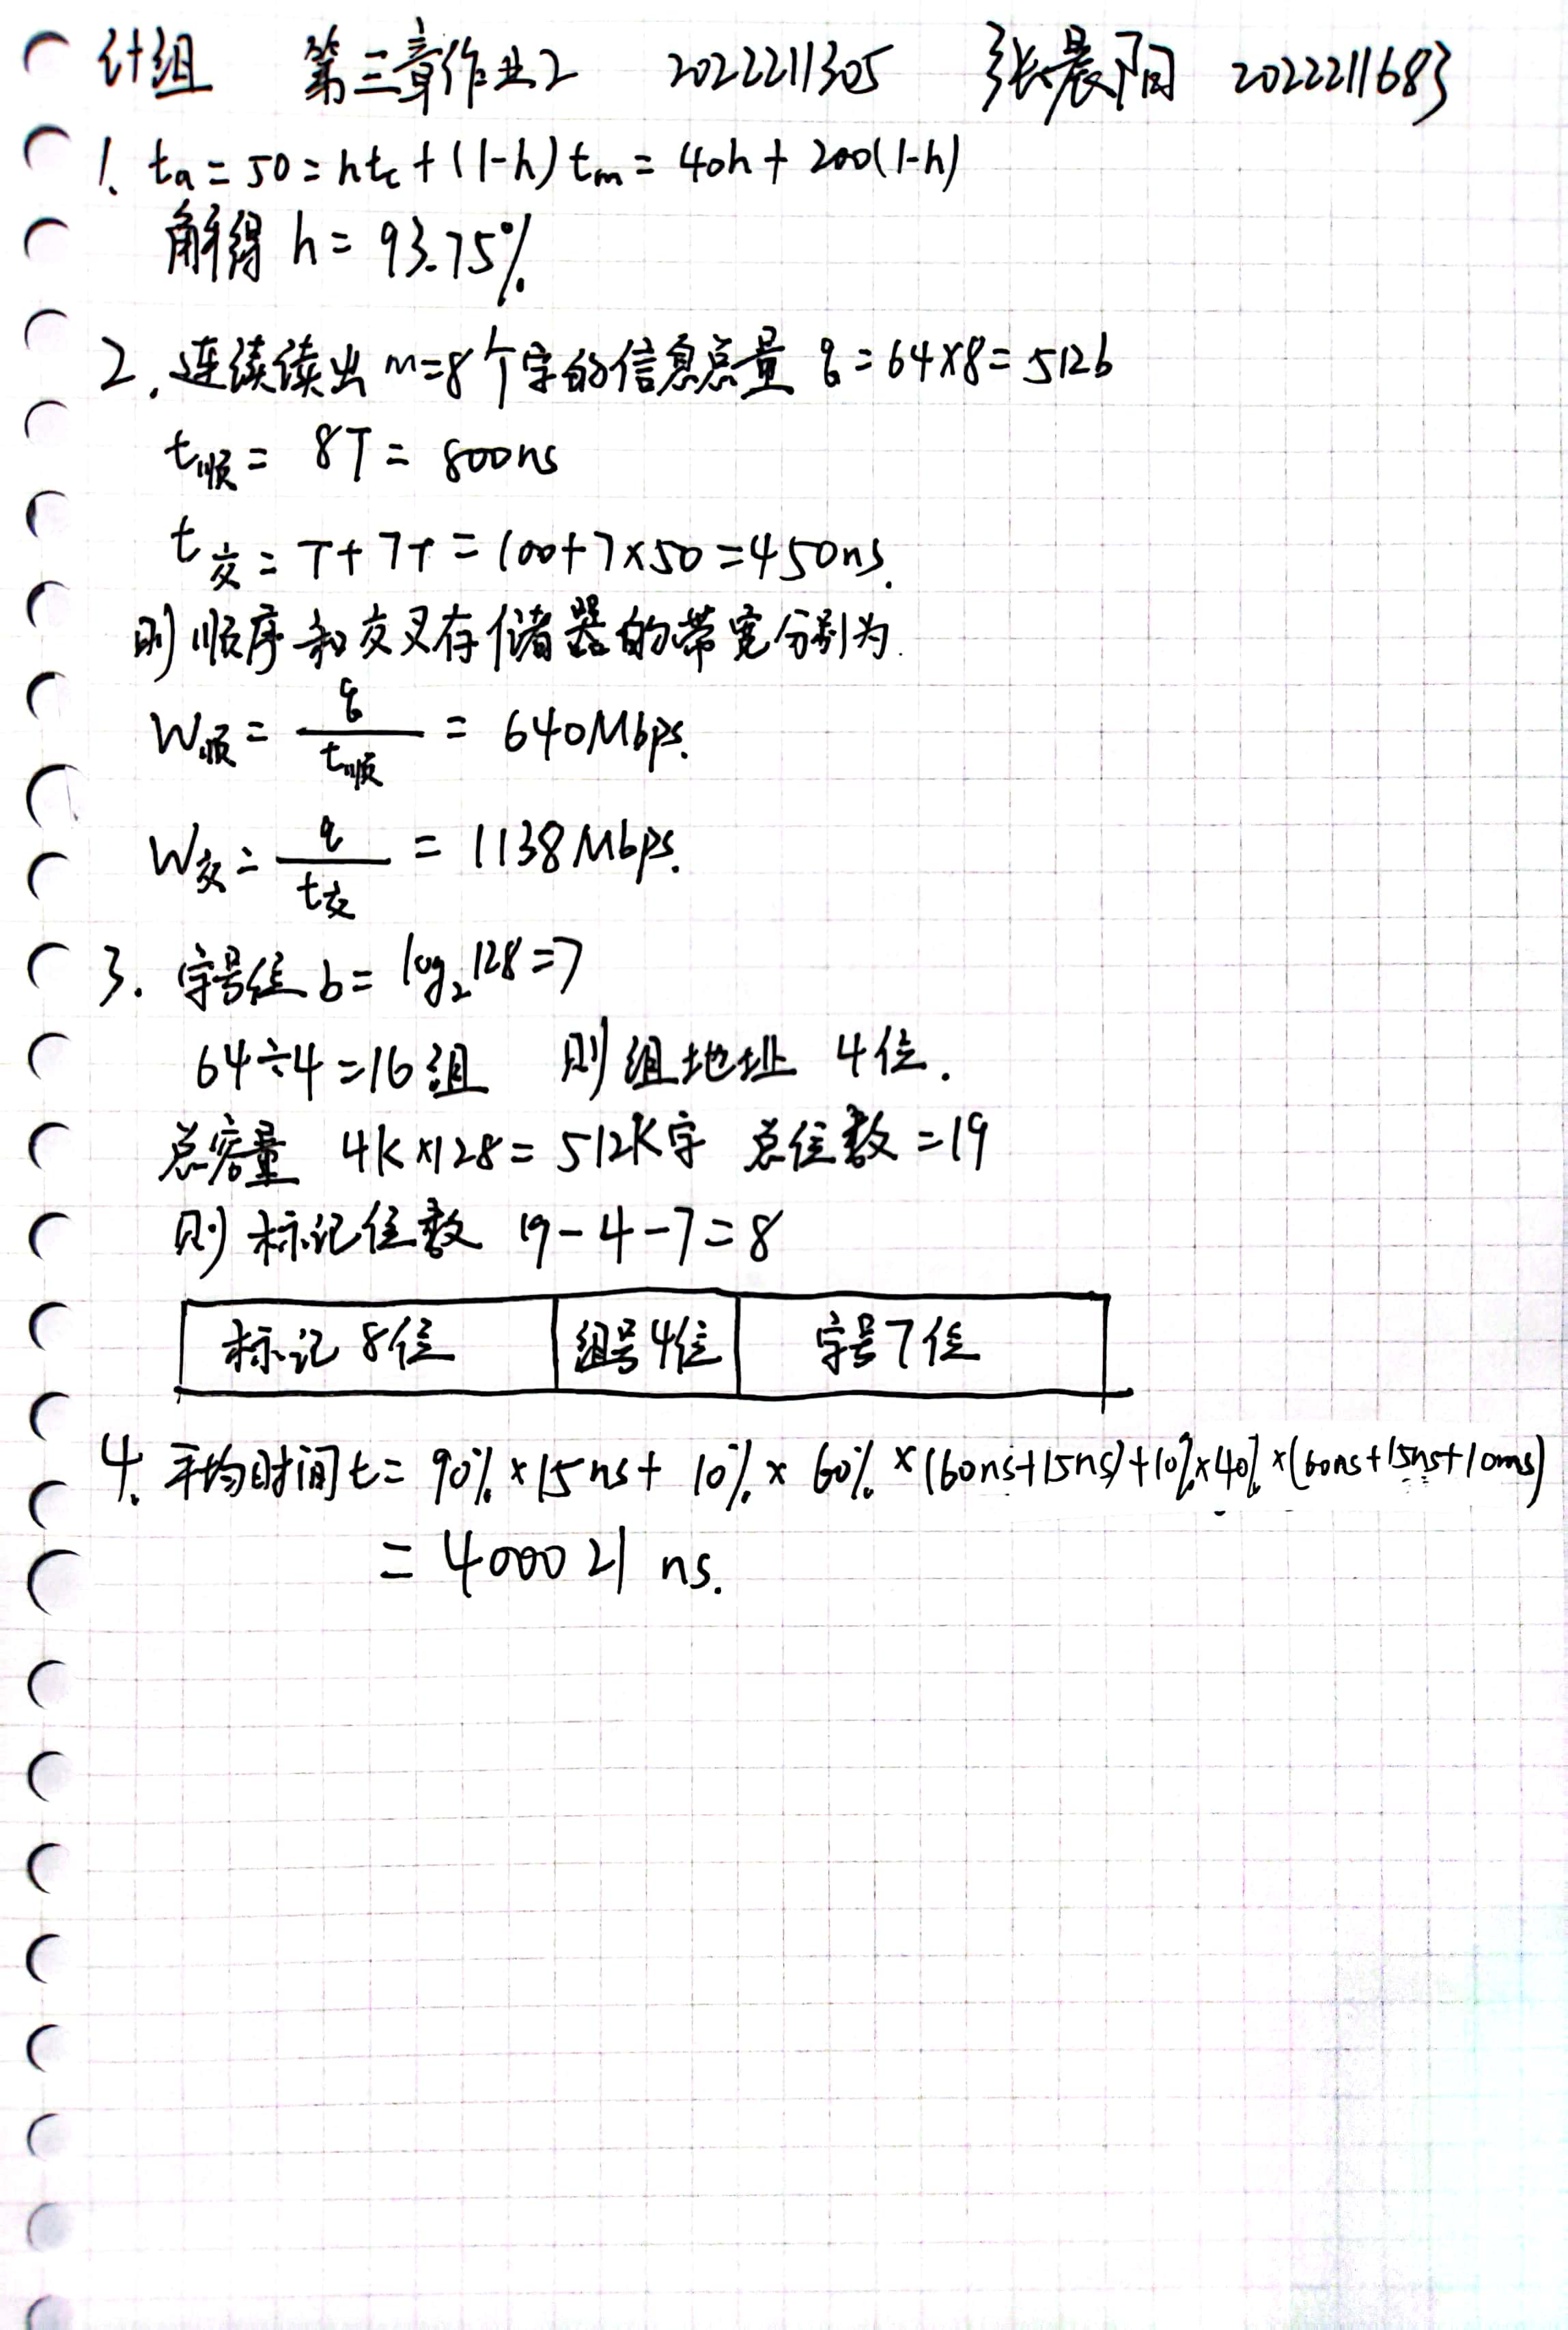 计组 第三章作业2 2022211305 张晨阳 2022211683
1. ta = 50 = htc + (1-h) tm = 40h + 200(1-h)
解得 h = 93.75%
2. 连续读出 m=8个字的信息总量 q = 64×8 = 512b
t顺 = 8T = 800ns
t交 = T + 7τ = 100+7×50 = 450ns.
则顺序和交叉存储器的带宽分别为.
W顺 = q/t顺 = 640Mbps.
W交 = q/t交 = 1138Mbps.
3. 字号位 b = log₂128 = 7
64÷4 = 16组 则组地址 4位.
总容量 4K×128 = 512K字 总位数 = 19
则标记位数 19-4-7 = 8
标记 8位 组号4位 字号7位
4. 平均时间t = 90% × 15ns + 10% × 60% × (60ns+15ns) + 10%×40% × (60ns+15ns+10ms)
= 400021 ns.